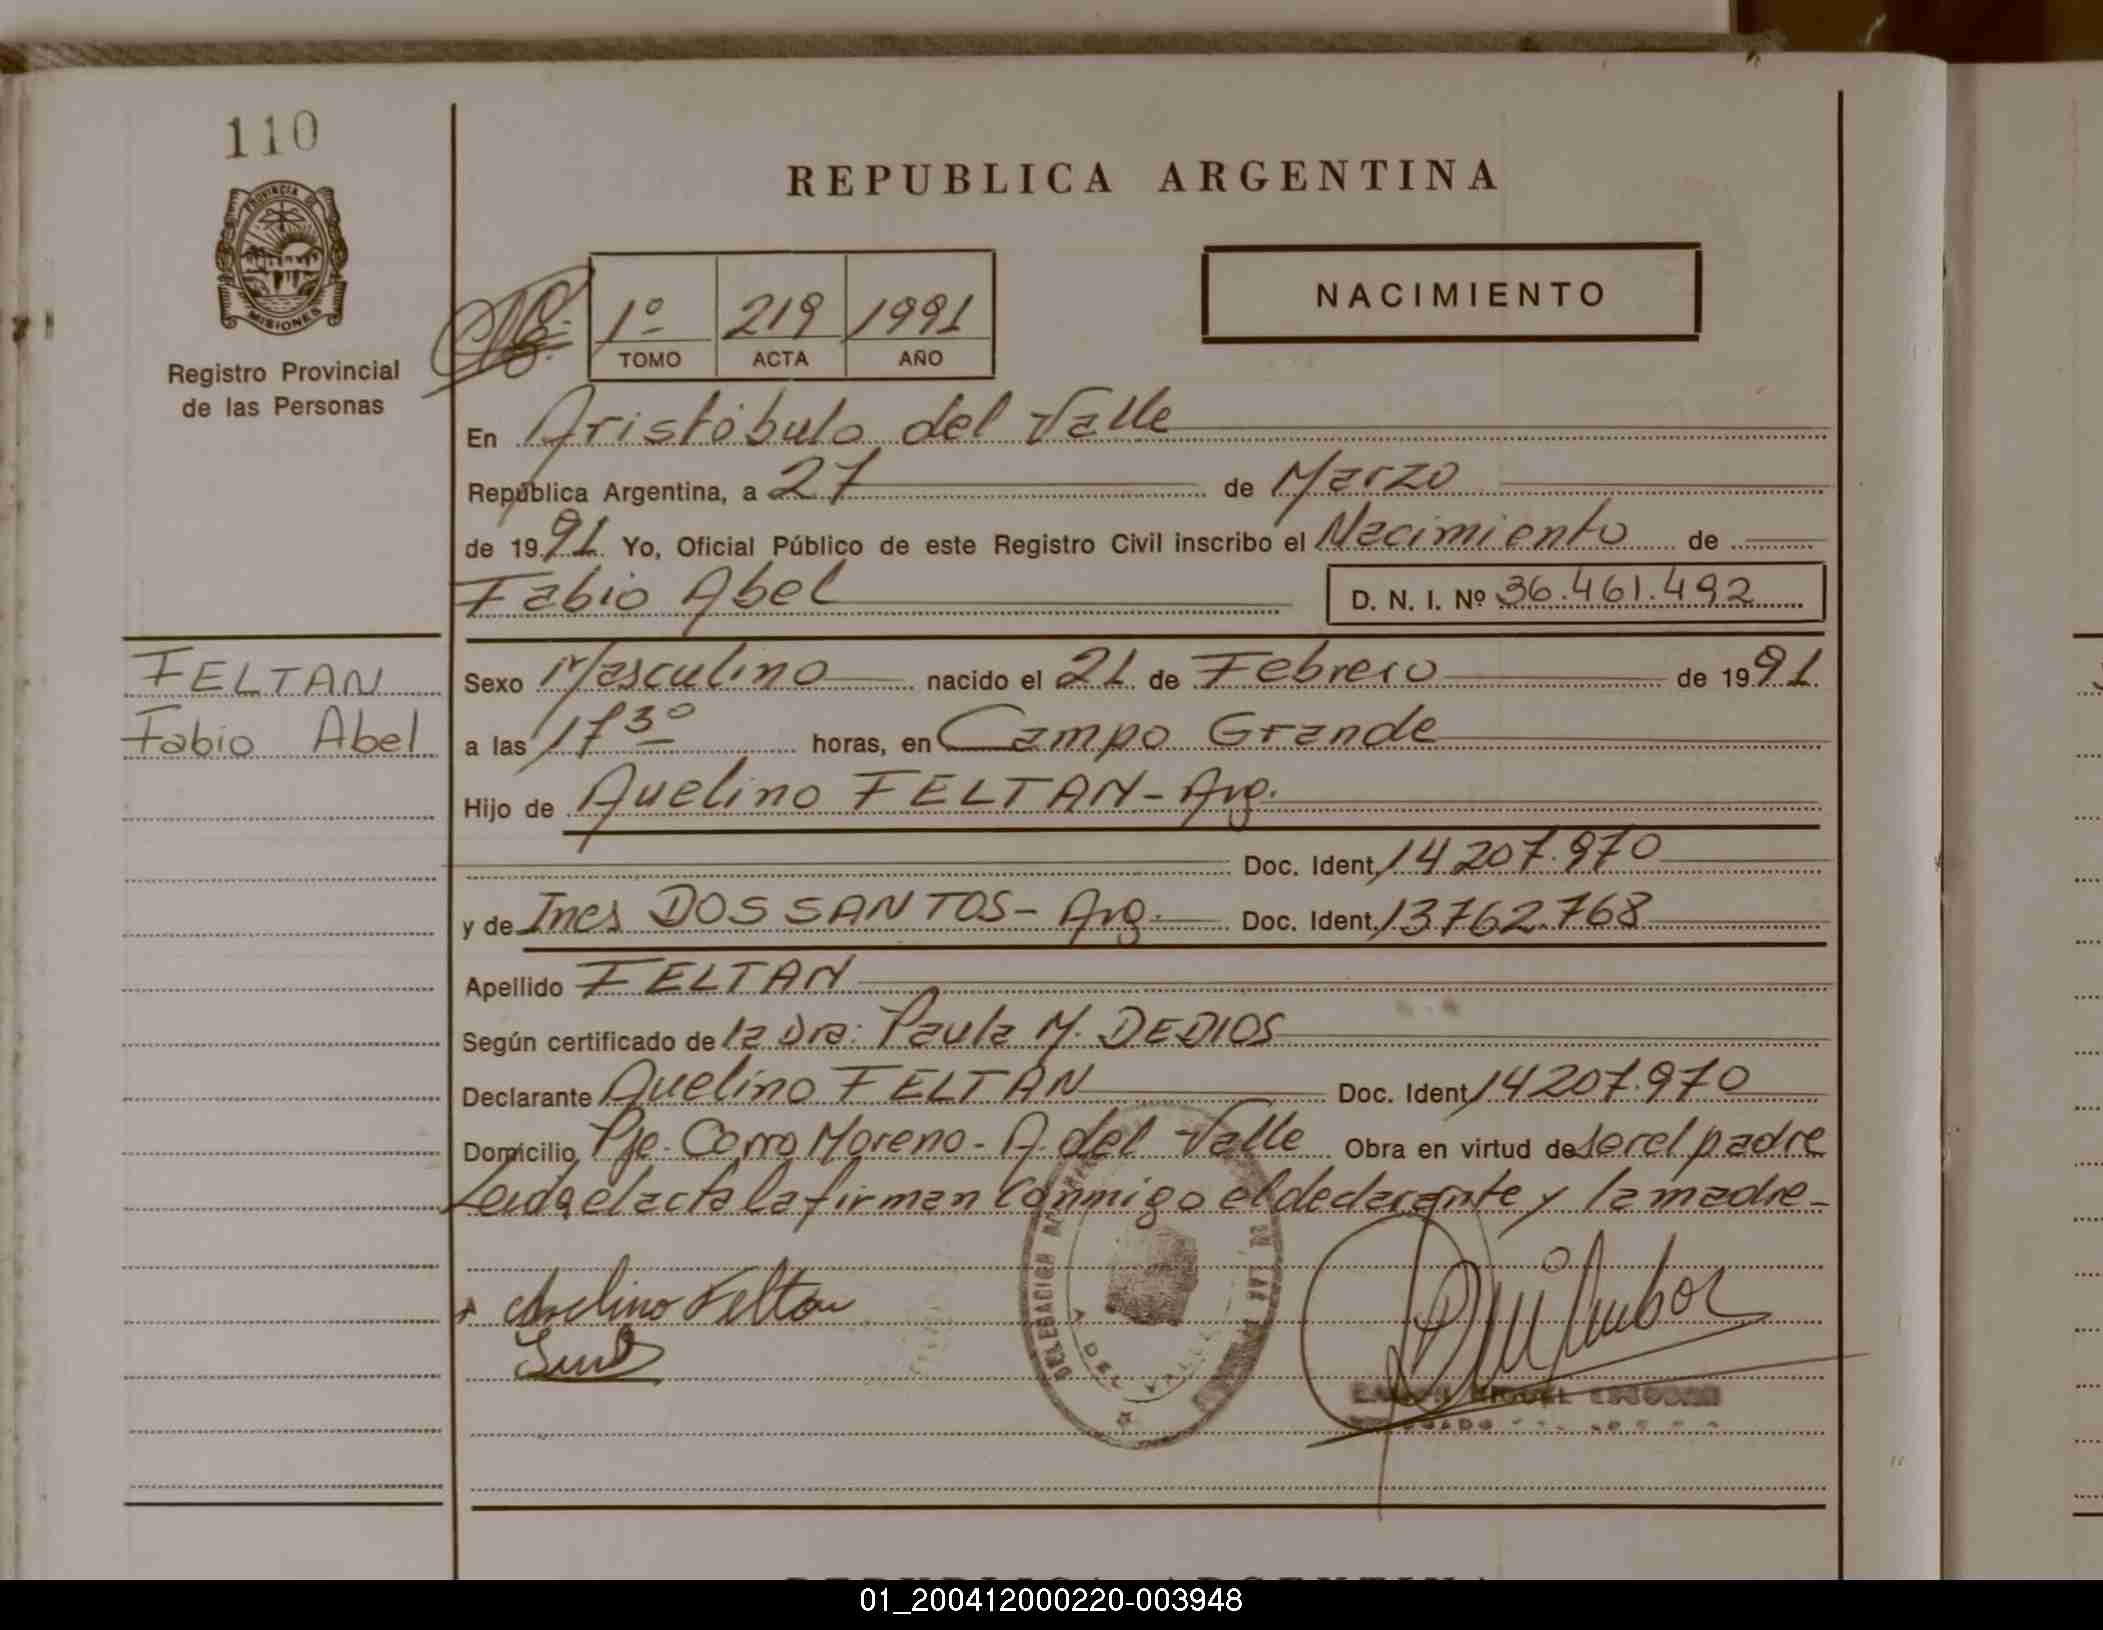 110
REPUBLICA ARGENTINA
PROVINCIA DE
MISIONES
Registro Provincial
de las Personas
1º 219 1991
TOMO ACTA AÑO
NACIMIENTO
En Aristóbulo del Valle
República Argentina, a 27 de Marzo
de 1991 Yo, Oficial Público de este Registro Civil inscribo el Nacimiento de
Fabio Abel D. N. I. Nº 36.461.492
FELTAN
Fabio Abel
Sexo Masculino nacido el 21 de Febrero de 1991
a las 17 3º horas, en Campo Grande
Hijo de Avelino FELTAN - Arg.
Doc. Ident. 14207.970
y de Ines DOS SANTOS - Arg. Doc. Ident. 13762.768
Apellido FELTAN
Según certificado de la Dra: Paula M. DEDIOS
Declarante Avelino FELTAN Doc. Ident. 14207.970
Domicilio Pje. Cerro Moreno - A. del Valle Obra en virtud de ser el padre
Leida el acta la firman conmigo el declarante y la madre -
Avelino Feltan
DELEGACION DE LAS
A. DEL VALLE
MIGUEL ESCOBAR
01_200412000220-003948